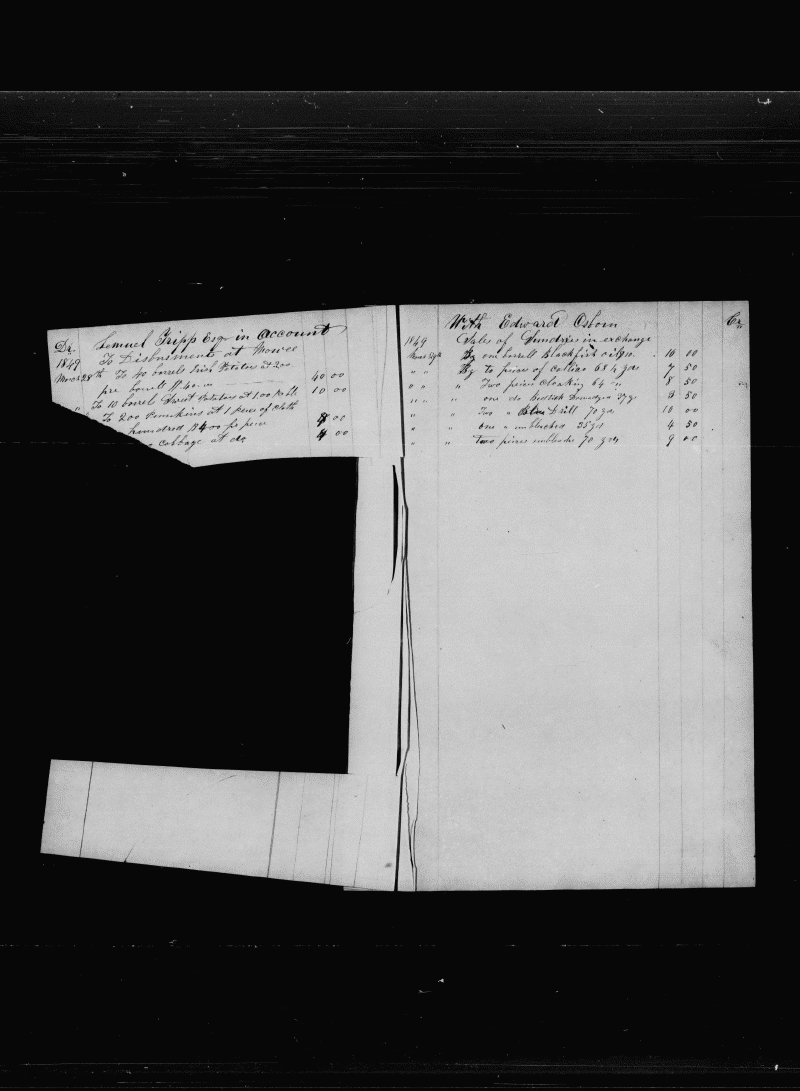 Dr. Lemuel Tripp Esqr in account
1849 To Disbursments at Mowee
To 40 barrels Irish Potatos at 200
per barrell $ 40 00
To 10 barrell Sweet Potatos at 100 10 00
To 200 Pumkins at 1 peice of cloth
hundred $400 pr peice 8 00
cabbage at do 4 00
With Edward Osborn Cr
1849 Sales of Sundries in exchange
By one barrell Blackfish oil $10. 10 00
" " By to peices of Cottias 64 yds 7 50
" " " Two peices 64 " 8 50
" " " one do 37 yds 3 50
" " Two " Blue Drill 70 yds 10 00
" " one " unbleached 35 yds 4 50
" " Two peices unbleache 70 yds 9 00